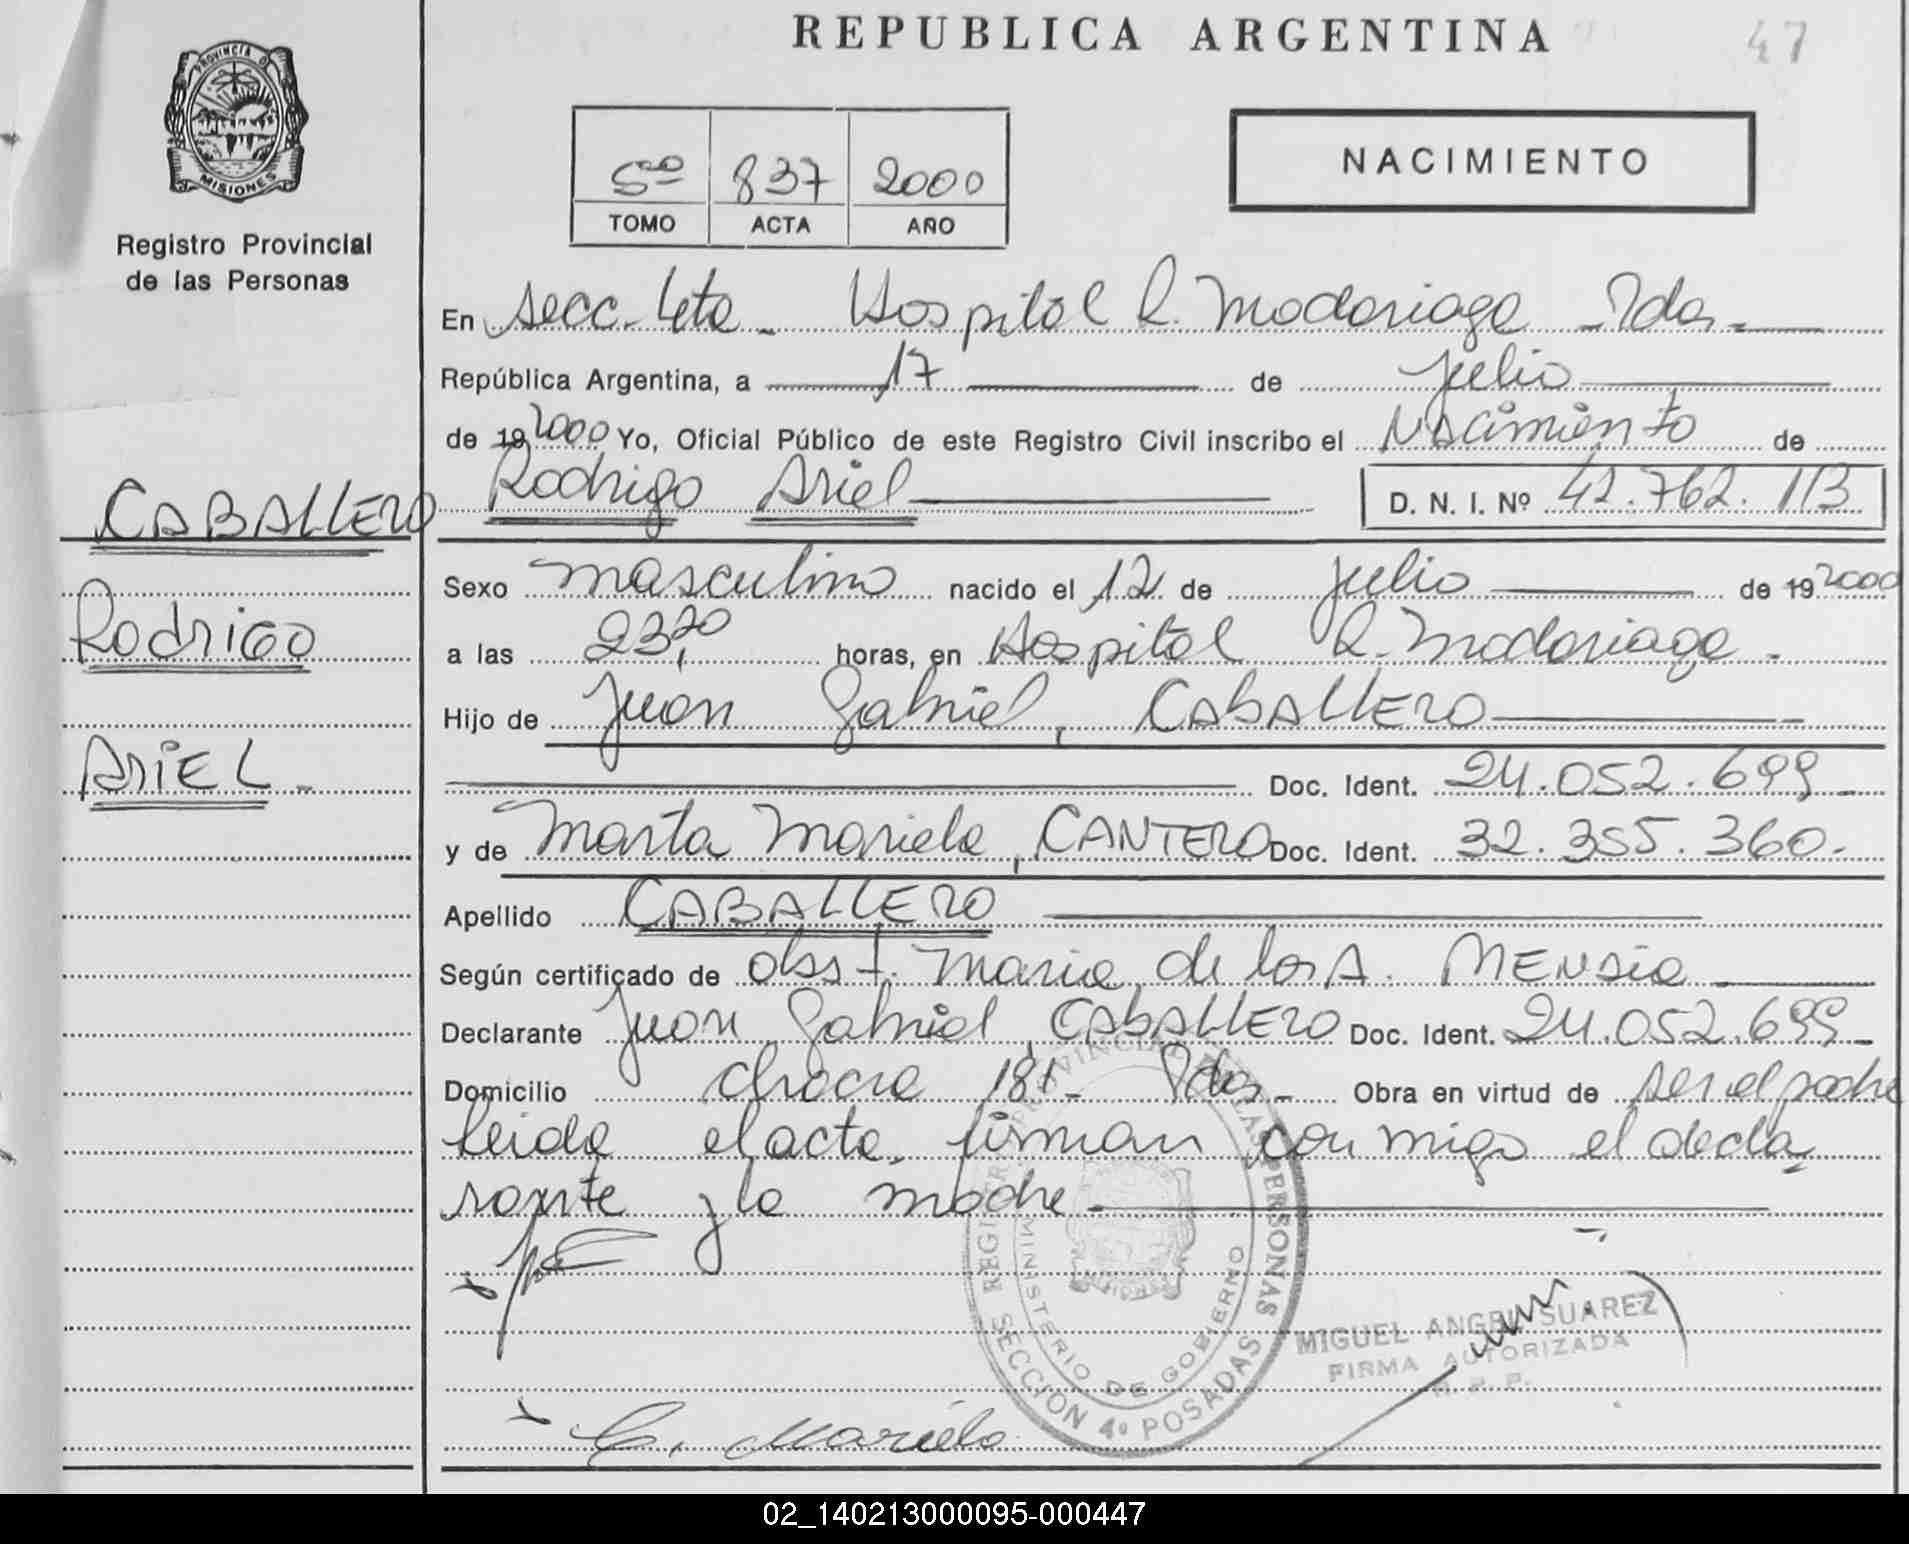 REPUBLICA ARGENTINA
47
PROVINCIA D
MISIONES
Registro Provincial
de las Personas
5to 837 2000
TOMO ACTA AÑO
NACIMIENTO
En Secc. 4ta - Hospital R. Madariaga - Pdas -
República Argentina, a 17 de Julio
de 19 2000 Yo, Oficial Público de este Registro Civil inscribo el Nacimiento de
CABALLERO Rodrigo Ariel D. N. I. Nº 42.762.113
Sexo masculino nacido el 12 de Julio de 19 2000
Rodrigo
a las 23,20 horas, en Hospital R. Madariaga -
Hijo de Juan Gabriel, CABALLERO
ARIEL -
Doc. Ident. 24.052.699 -
y de Marta Mariela, CANTERO Doc. Ident. 32.355.360 -
Apellido CABALLERO
Según certificado de obst. Maria de los A. MENSia
Declarante Juan Gabriel, CABALLERO Doc. Ident. 24.052.699 -
Domicilio chacra 181 - Pdas - Obra en virtud de ser el padre
leida el acta, firman conmigo el decla
rante y la madre -
REGISTRO PROVINCIAL DE LAS PERSONAS
MINISTERIO DE GOBIERNO
SECCION 4º POSADAS
MIGUEL ANGEL SUAREZ
FIRMA AUTORIZADA
R. P. P.
C. Mariela
02_140213000095-000447